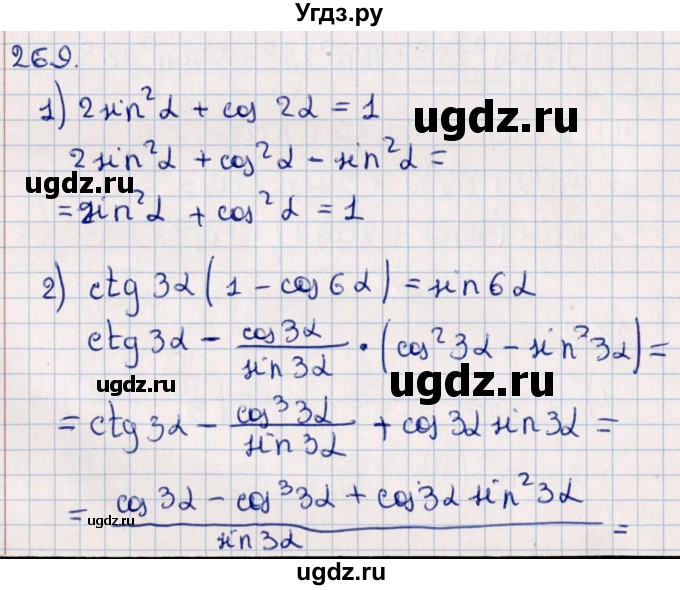 Угдз.ру
269.
1) 2sin²α + cos 2α = 1
ugdz.ru
2sin²α + cos²α - sin²α =
ugdz.ru
= sin²α + cos²α = 1
2) ctg 3α (1 - cos 6α) = sin 6α
ctg 3α - cos 3α / sin 3α · (cos² 3α - sin² 3α) =
ugdz.ru
ugdz.ru
= ctg 3α - cos³ 3α / sin 3α + cos 3α sin 3α =
ugdz.ru
= cos 3α - cos³ 3α + cos 3α sin² 3α / sin 3α =
ugdz.ru
ugdz.ru